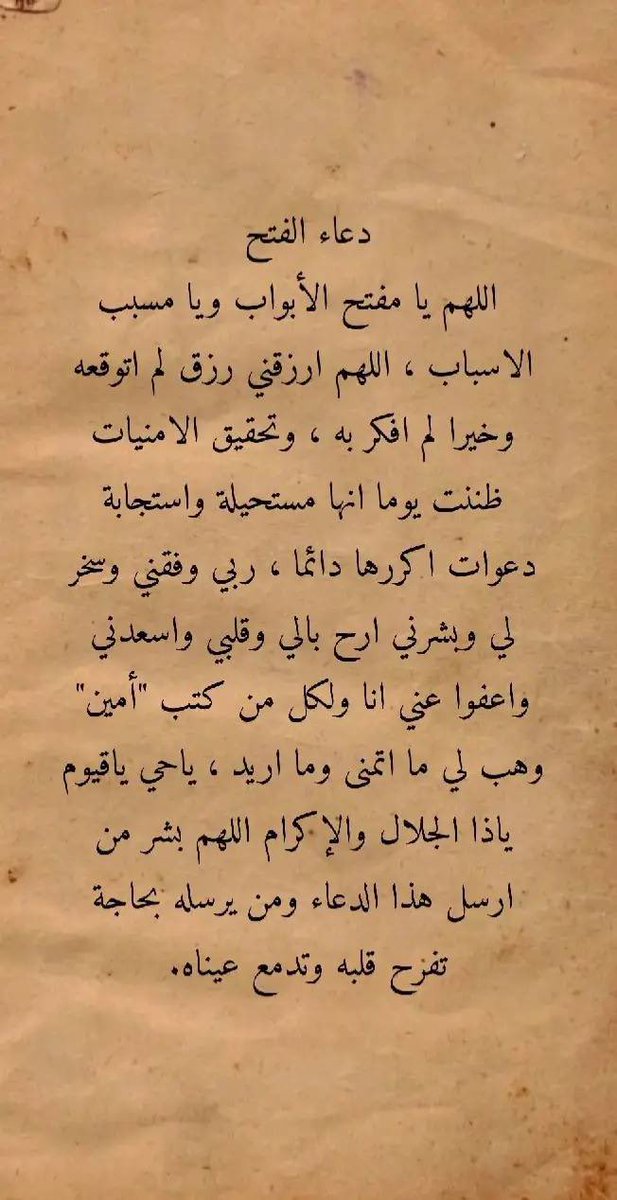 دعاء الفتح
اللهم يا مفتح الأبواب ويا مسبب
الاسباب ، اللهم ارزقني رزق لم اتوقعه
وخيرا لم افكر به ، وتحقيق الامنيات
ظننت يوما انها مستحيلة واستجابة
دعوات اكررها دائما ، ربي وفقني وسخر
لي وبشرني ارح بالي وقلبي واسعدني
واعفوا عني انا ولكل من كتب "أمين"
وهب لي ما اتمنى وما اريد ، ياحي ياقيوم
ياذا الجلال والإكرام اللهم بشر من
ارسل هذا الدعاء ومن يرسله بحاجة
تفرح قلبه وتدمع عيناه.